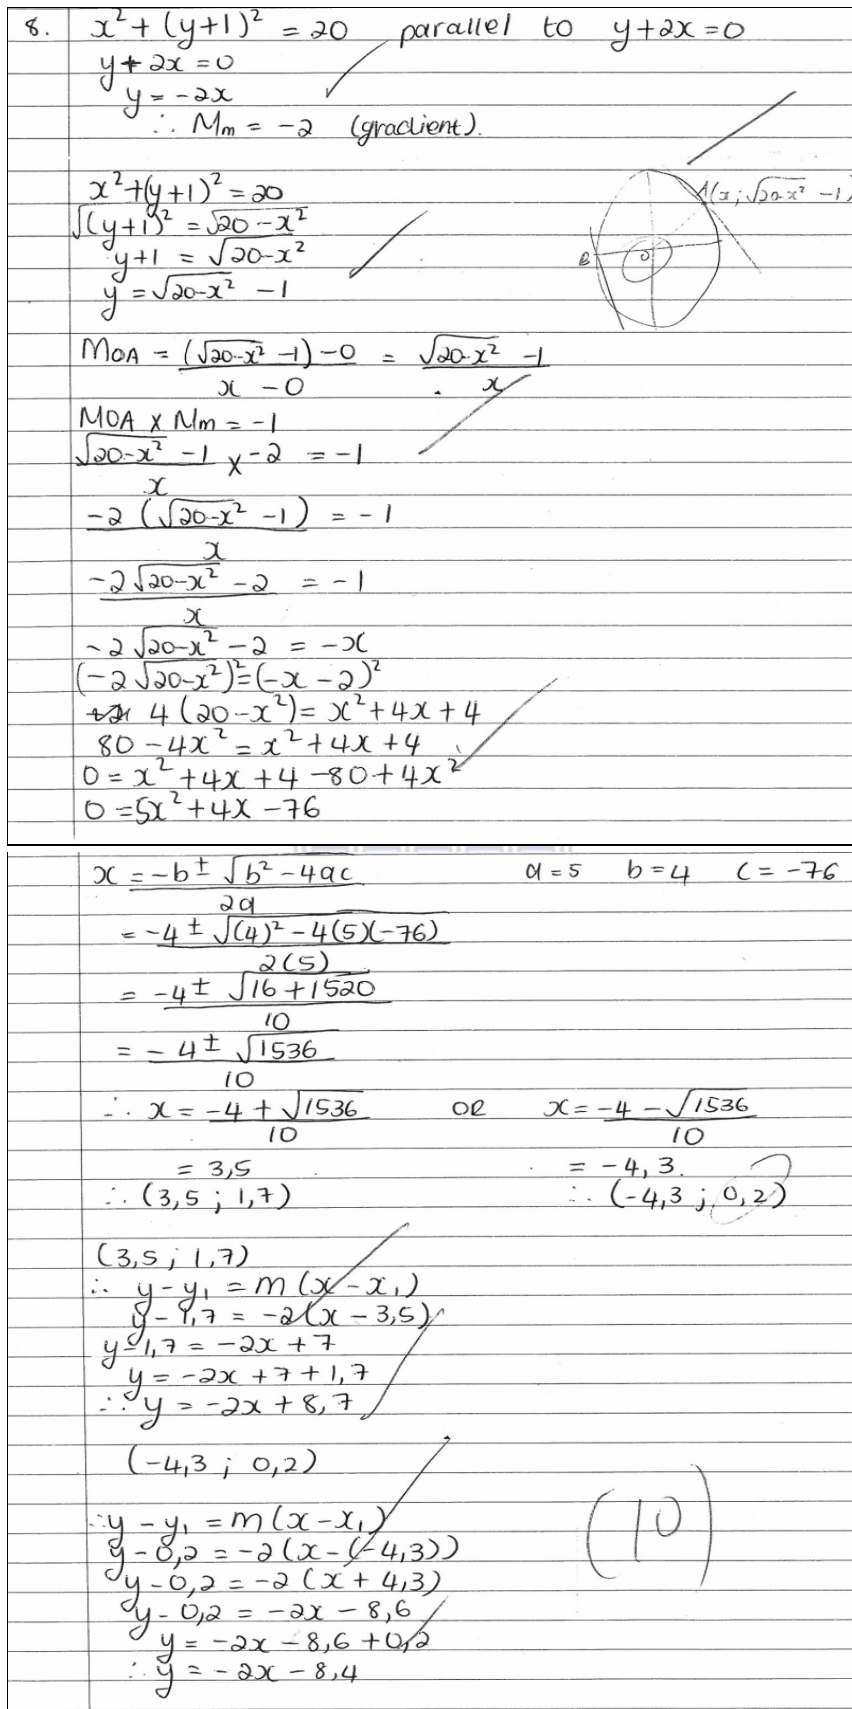 8. x² + (y+1)² = 20 parallel to y+2x=0
y+2x=0
y = -2x
∴ Mm = -2 (gradient).
x²+(y+1)²=20
√(y+1)² = √20-x²
y+1 = √20-x²
y = √20-x² - 1
A(x; √20-x² - 1)
B
O
MOA = (√20-x² - 1) - 0 / x - 0 = √20-x² - 1 / x
MOA × Mm = -1
√20-x² - 1 / x × -2 = -1
-2 (√20-x² - 1) / x = -1
-2√20-x² - 2 / x = -1
-2√20-x² - 2 = -x
(-2√20-x²)² = (-x - 2)²
4(20-x²) = x²+4x+4
80-4x² = x²+4x+4
0 = x²+4x+4-80+4x²
0 = 5x²+4x-76
x = -b ± √b²-4ac / 2a a=5 b=4 c=-76
= -4 ± √(4)²-4(5)(-76) / 2(5)
= -4 ± √16+1520 / 10
= -4 ± √1536 / 10
∴ x = -4 + √1536 / 10 OR x = -4 - √1536 / 10
= 3,5 = -4,3.
∴ (3,5 ; 1,7) ∴ (-4,3 ; 0,2)
(3,5 ; 1,7)
∴ y-y₁ = m(x-x₁)
y-1,7 = -2(x-3,5)
y-1,7 = -2x+7
y = -2x+7+1,7
∴ y = -2x+8,7
(-4,3 ; 0,2)
∴ y-y₁ = m(x-x₁)
y-0,2 = -2(x-(-4,3))
y-0,2 = -2(x+4,3)
y-0,2 = -2x-8,6
y = -2x-8,6+0,2
∴ y = -2x-8,4
(10)